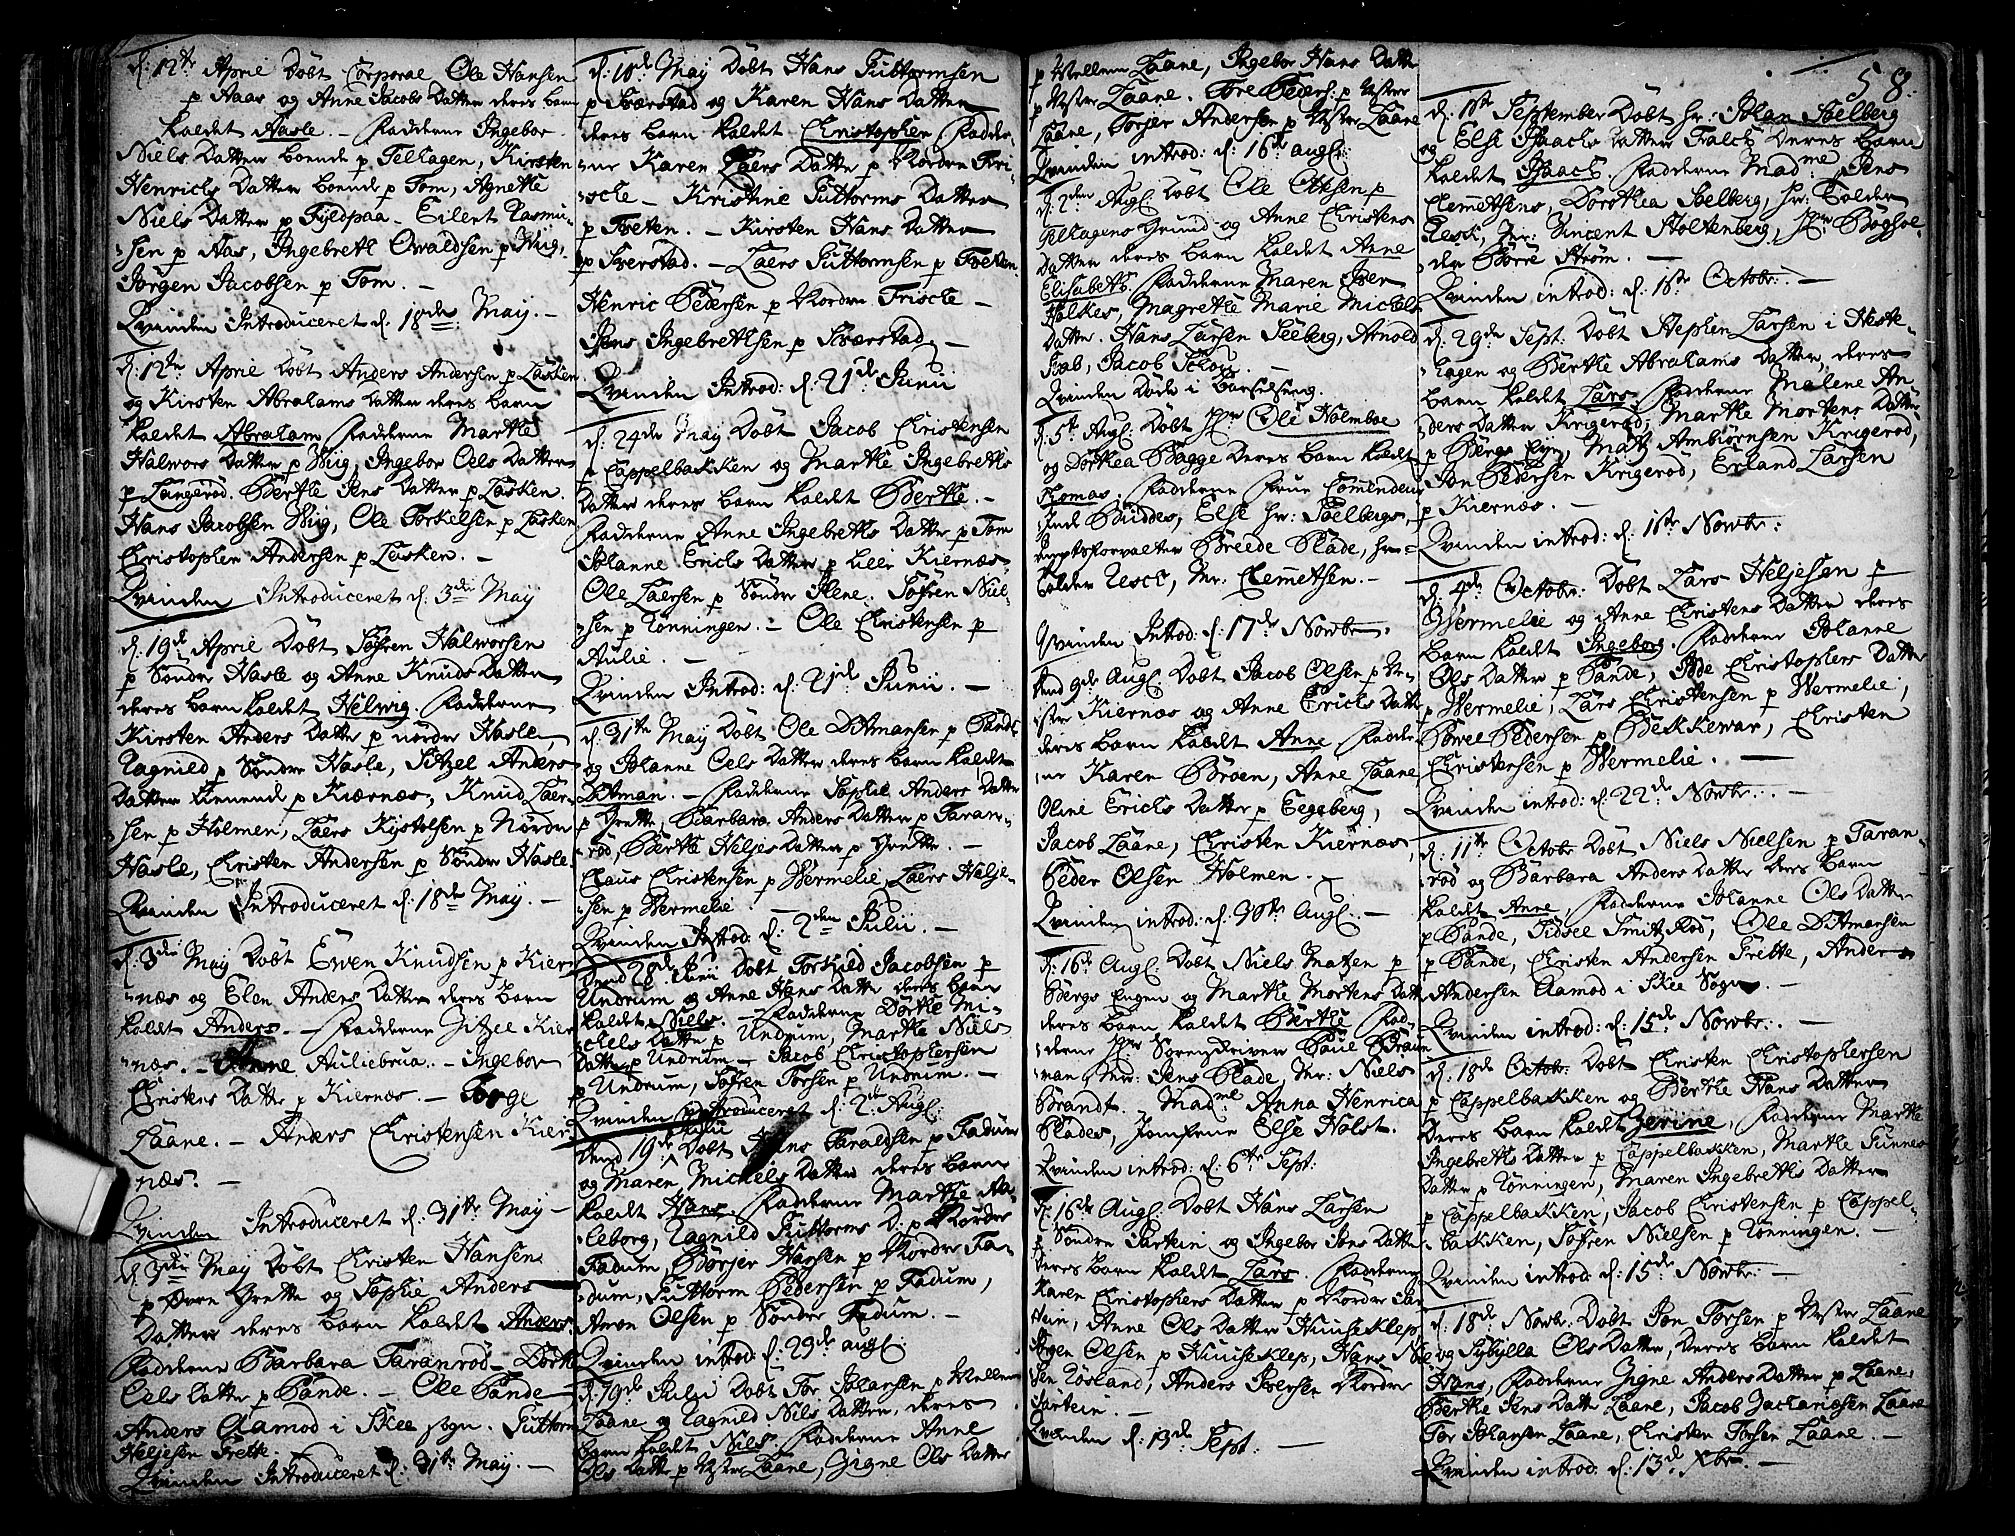 d: 12te April Döbt Corporal Ole Hansen
p Aas og Anne Jacobs Datter deres barn
kaldet Hasle. - Fadderne Ingebor
Niels Datter boende p Felhagen, Kirsten
Henrichs Datter boende p Tom, Agnette
Niels Datter p Fyldpaa - Eilert Rasmu-
sen p Aas, Ingebreth Owaldsen p Wiig,
Jörgen Jacobsen p Tom. -
Qvinden Introduceret d: 18de May. -
d: 12te April Döbt Anders Andersen p Lasken
og Kirsten Abrahams Datter deres barn
kaldet Abraham Fadderne Marthe
Halwors Datter p Wiig, Ingebor Oels Datter
p Langeröd. Berthe Jens Datter p Lasken.
Hans Jacobsen Wiig, Ole Torkelsen p Lasken
Christopher Andersen p Lasken. -
Qvinden Introduceret d: 3die May
d: 19de April Döbt Söfren Halworsen
p Söndre Hasle og Anne Knuds Datter
deres barn kaldet Helwig. Fadderne
Kirsten Anders Datter p nördre Hasle,
Ragnild p Söndre Hasle, Sitzel Anders
Datter p Kiærnæs, Knud Laer-
sen p Holmen, Laers Kystolsen p Nördre
Hasle, Christen Andersen p Söndre Hasle.
Qvinden Introduceret d: 18de May. -
d: 3die May Döbt Ewen Knudsen p Kier-
næs og Elen Anders Datter deres barn
kaldt Anders. - Fadderne Zitzel Kier
næs. - Anne Auliebrua. - Ingebor
Christens Datter p Kiernæs. - Borge
Laane. - Anders Christensen Kier
næs. -
Qvinden Introduceret d: 31te May -
d: 3die May Döbt Christen Hansen
p Övre Grette og Sophie Anders
Datter deres barn kaldet Anders.
Fadderne Barbara Taranröd - Dorthe
Oels Datter p Sande. - Ole Sande
Anders Aamod i Skee sogn. Guttorm
Heljesen Grette.
Qvinden Introduceret d: 31te May. -
d: 10de May Döbt Hans Guttormsen
p Sverstad og Karen Hans Datter
deres barn kaldet Christopher Fadder-
ne Karen Laers Datter p Nordre Fri-
sche - Kristine Guttorms Datter
p Tveten. - Kirsten Hans Datter
p Sverstad. - Laers Guttormsen p Tveten
Henric Pedersen p Nordre Frische -
Jens Ingebrethsen p Sverstad, -
Qvinden Introd: d: 21de Junii
d: 24de May Döbt Jacob Christensen
p Cappelbakken og Marthe Ingebreths
Datter deres barn kaldet Berthe. -
Fadderne Anne Ingebreths Datter p Tom
Johanne Erichs Datter p Leer Kiernæs,
Ole Laersen p Söndre Ilene. Söfren Niel-
sen p Rönningen. - Ole Christensen p
Aulie. -
Qvinden Introd: d: 21de Junii. -
d: 31te May Döbt Ole Ditmansen p Sande
og Johanne Oels Datter deres barn kaldet
Ditman. - Fadderne Sophie Anders Datter
p Grette, Barbara Anders Datter p Taran-
röd, Berthe Heljes Datter p Grette. -
Claus Christensen p Wermelie, Laers Helje-
sen p Wermelie -
Qvinden Introd: d: 2den Julii. -
Dend 28de Junii Döbt Torkild Jacobsen p
Undrum og Anne Hans Datter deres barn
kaldet Niels. - Fadderne Dorthe Mi-
chels Datter p Undrum, Marthe Niels
Datter p Undrum - Jacob Christophersen
p Undrum, Söfren Torsen p Undrum. -
Qvinden Introduceret d: 2de Augl:
Dend 19de Julii Döbt Hans Haraldsen p Fadum
og Maren Michels Datter deres barn
kaldet Hans. Fadderne Marthe Aa-
seborg, Ragnild Guttorms D: p Nordre
Fadum, Börjer Hansen p Nordre Fa-
dum, Guttorm Pedersen p Fadum,
Amon Olsen p Söndre Fadum. -
Qvinden introd: d: 29de Augl:
d: 19de Julii Döbt Tor Johansen p Mellem
Laane og Ragnild Nils Datter, deres
barn kaldet Nils Fadderne Anne
Ols Datter p Vester Laane, Zigne Ols Datter
p Mellem Laane, Ingebor Hans Datter
p Vester Laane. Tore Peders: p Vester
Laane, Torjer Andersen p Vester Laane
Qvinden introd: d: 16de Augl:
d: 2den Augl: Döbt Ole Olsen p
Felhagens Grund og Anne Christens
Datter deres barn kaldet Anne
Elisabeth. Fadderne Maren Iver
Holkes, Magrethe Marie Michels
Datter. Hans Larsen Seeberg, Arnold
Jacob Schou. -
Qvinden döde i Barselseng.
d: 5te Augl: Döbt Hr: Ole Holmboe
og Dorthea Bagge deres barn kaldt
Thomas, Fadderne Frue Comendeu-
Buddes, Else Hr: Soelbergs,
Amptsforvalter Breede Plade, Hr:
Tolder Resch, Mr: Clemetsen. -
Qvinden Introd: d: 17de Novbr.
Dend 9de Augl: Döbt Jacob Olsen p Ve-
ster Kiernæs og Anne Erichs Datter
deres barn kaldet Anne Fadder-
ne Karen Broen, Anne Laane
Oline Erichs Datter p Eegeberg,
Jacob Laane, Christen Kiernæs,
Peder Olsen Holmen. -
Qvinden introd: d: 30te Augl. -
d: 16de Augl: Döbt Niels Matzen p
Bergs Engen og Marthe Mortens Datter
deres barn kaldet Berthe Fad-
derne Hr Sorenskriver Poul Brau-
man, Mr: Jens Plade, Mr: Niels
Brandt. Madme Anna Henrica
Plades, Jomfrue Else Holst. -
Qvinden introd: d: 6te Sept:
d: 16de Augl: Döbt Hans Larsen
p Söndre Sartein og Ingebor Jens Datter
deres barn kaldet Lars. Fadderne
Karen Christophers Datter p Nordre Sar
tein, Anne Ols Datter Huuseklep,
Jörgen Olsen p Huuseklep, Hans Niel
sen Rösland, Anders Iversen Nordre
Sartein. -
Qvinden d: 13de Sept: -
58.
d: 11te September Döbt Hr: Johan Soelberg
og Else Isaachs Datter Falch deres barn
kaldet Isaach. Fadderne Madme Jens
Clemetsens, Dorothea Soelberg, Hr: Tolder
Resch, Mr: Vincent Stoltenberg, Hr Boghol-
der Börre Ström. -
Qvinden introd: d: 18de Octobr: -
d: 29de Sept: Döbt Stephen Larsen i Heste-
hagen og Berthe Abrahams Datter, deres
barn kaldet Lars, Fadderne Malene An-
ders Datter Krigeröd, Marthe Mortens Datter
p Bergs Eye, Matz Ambiörnsen Krigeröd,
Jon Pedersen Krigeröd, Erland Larsen
p Kiernæs. -
Qvinden introd: d: 11te Nowbr:
d: 4de Octobr: Döbt Lars Heljesen p
Wermelie og Anne Christens Datter deres
barn kaldet Ingeborg. Fadderne Johanne
Ols Datter p Sande, Ide Christophers Datter
p Wermelie, Lars Christensen p Wermelie,
Powel Pedersen p Bekkevar, Christen
Christensen p Wermelie. -
Qvinden introd: d: 22de Nowbr: -
d: 11te Octobr Döbt Niels Nielsen p Taran-
röd og Barbara Anders Datter deres barn
kaldet Anne, Fadderne Johanne Ols Datter
p Sande, Sidsel Smitzröd, Ole Ditmansen
p Sande, Christen Andersen Grette, Anders
Andersen Aamod i Skee Sogn. -
Qvinden introd: d: 15de Nowbr: -
d: 18de Octobr: Döbt Christen Christophersen
p Cappelbakken og Berthe Hans Datter
deres barn kaldet Zerine, Fadderne Marthe
Ingebreths Datter p Cappelbakken, Marthe Gunnes
Datter p Rönningen, Maren Ingebreths Datter
p Cappelbakken, Jacob Christensen p Cappel-
bakken, Söfren Nielsen p Rönningen. -
Qvinden introd: d: 15de Nowbr: -
d: 18de Nowbr: Döbt Jon Torsen p Vester Laane
og Sybylla Ols Datter, deres barn kaldet
Hans, Fadderne Zigne Anders Datter p Laane,
Berthe Jens Datter Laane, Jacob Zachariasen Laane
Tor Johansen Laane, Christen Torsen Laane. -
Qvinden introd: d: 13de Xbr: -